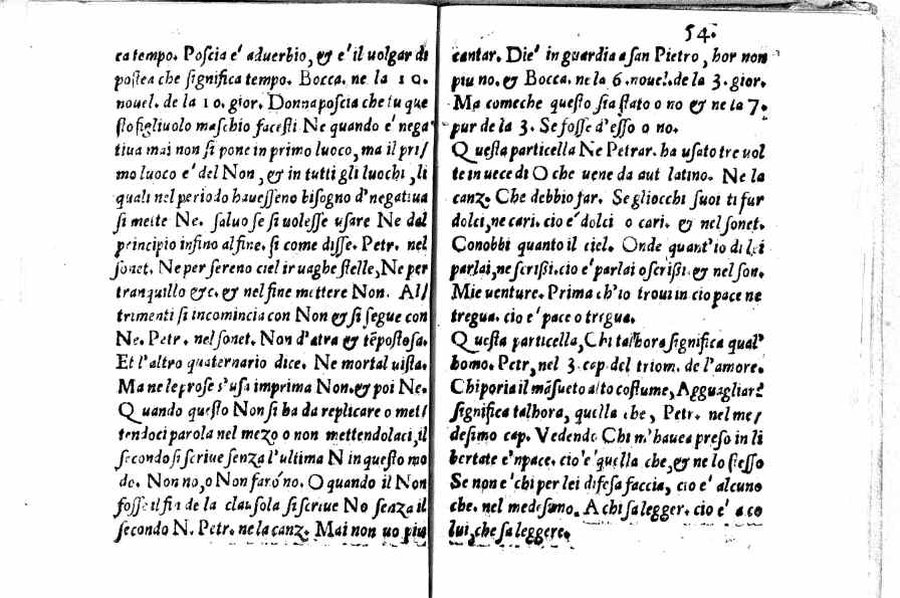 ca tempo. Poscia e' aduerbio, & e' il uolgar di
postea che significa tempo. Bocca. ne la 10.
nouel. de la 10. gior. Donna poscia che tu que
sto figliuolo maschio facesti Ne quando e' nega
tiua mai non si pone in primo luoco, ma il pri/
mo luoco e' del Non, & in tutti gli luochi, li
quali nel periodo hauesseno bisogno d'negatiua
si mette Ne. saluo se si uolesse usare Ne dal
principio infino al fine. si come disse. Petr. nel
sonet. Ne per sereno ciel ir uaghe stelle, Ne per
tranquillo &c. & nel fine mettere Non. Al/
trimenti si incomincia con Non & si segue con
Ne. Petr. nel sonet. Non d'atra & tẽpostosa.
Et l'altro quaternario dice. Ne mortal uista.
Ma ne le prose s'usa imprima Non. & poi Ne.
Quando questo Non si ha da replicare o met/
tendoci parola nel mezo o non mettendolaci, il
secondo si scriue senza l'ultima N in questo mo
do. Non no, o Non faro' no. O quando il Non
fosse il fin de la clausola si scriue No senza il
secondo N. Petr. ne la canz. Mai non uo piu
54.
cantar. Die' in guardia a san Pietro, hor non
piu no. & Bocca. ne la 6. nouel. de la 3. gior.
Ma comeche questo sia stato o no & ne la 7.
pur de la 3. Se fosse d'esso o no.
Questa particella Ne Petrar. ha usato tre uol
te in uece di O che uene da aut latino. Ne la
canz. Che debbio far. Se gliocchi suoi ti fur
dolci, ne cari. cio e' dolci o cari. & nel sonet.
Conobbi quanto il ciel. Onde quant'io di lei
parlai, ne scrißi. cio e' parlai o scrißi & nel son.
Mie uenture. Prima ch'io troui in cio pace ne
tregua. cio e' pace o tregua.
Questa particella, Chi talhora significa qual'
homo. Petr, nel 3. cap del triom. de l'amore.
Chi poria il mãsueto alto costume, Agguagliar?
significa talhora, quella che, Petr. nel me/
desimo cap. Vedendo Chi m'hauea preso in li
bertate e'n pace. cio e' quella che, & ne lo stesso
Se non e' chi per lei difesa faccia, cio e' alcuno
che. nel medesimo. A chi sa legger. cio e' a co
lui, che sa leggere.